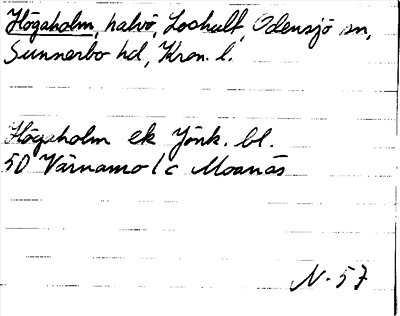 Högaholm, halvö, Loshult, Odensjö sn,
Sunnerbo hd, Kron. l.
Högaholm ek Jönk. bl.
5D Värnamo 1c Moanäs
N-57